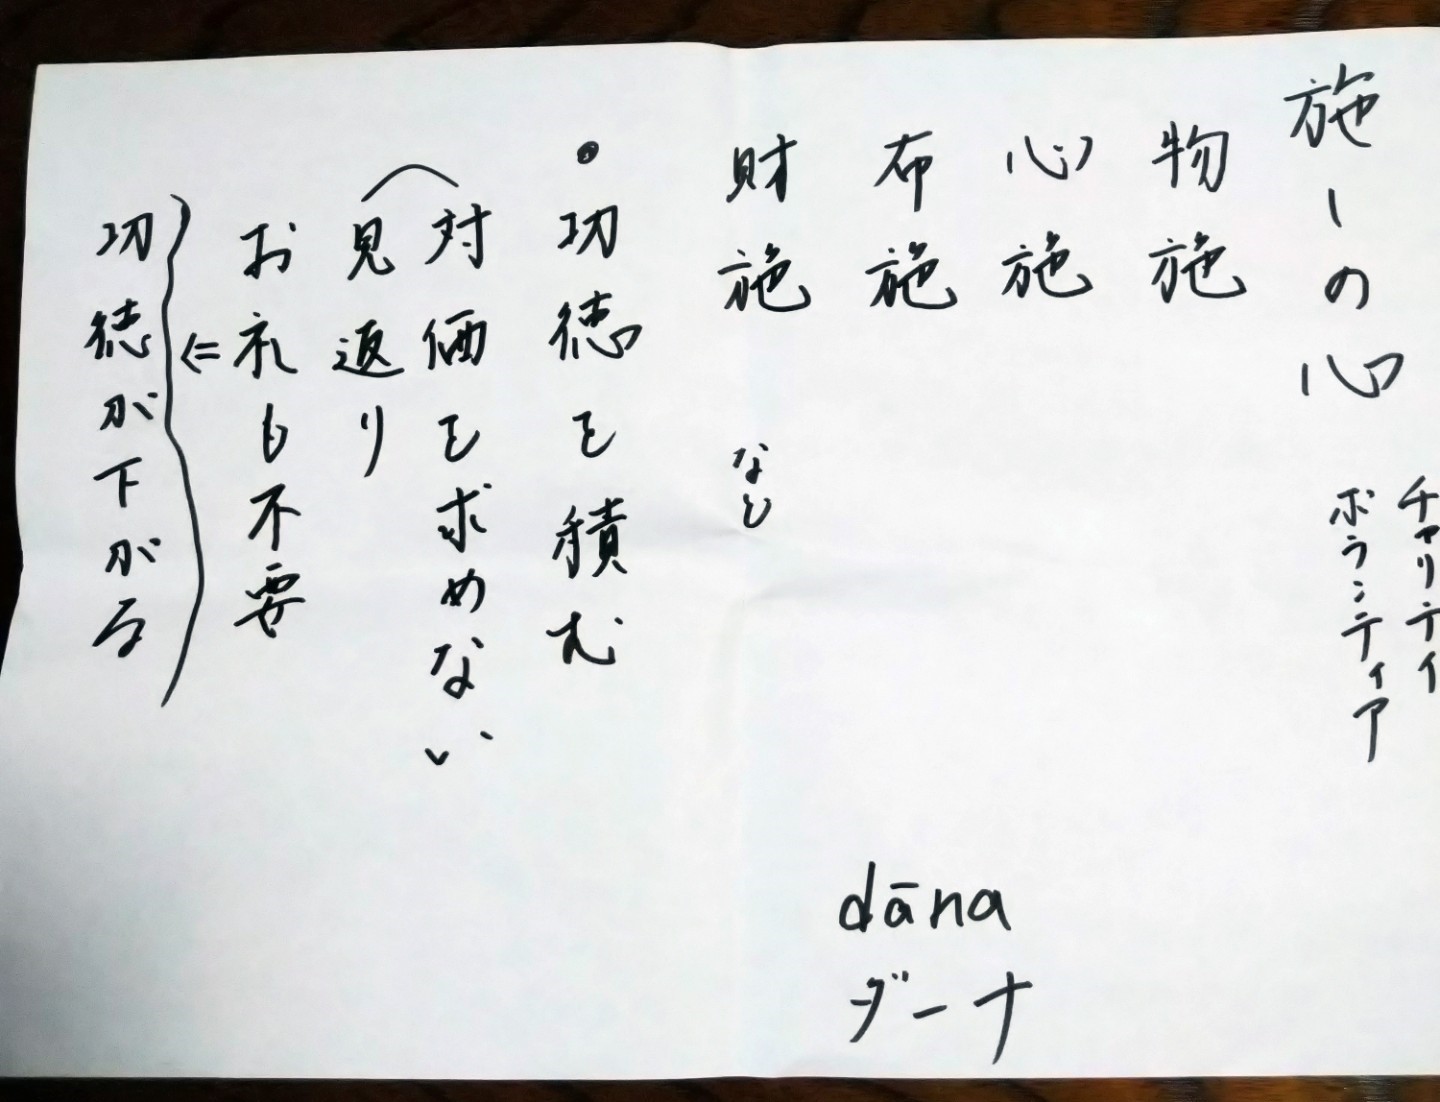 施しの心
チャリティ
ボランティア
物施
心施
布施
財施 など
・功徳を積む
対価を求めない
見返り
お礼も不要
⇐
功徳が下がる
dāna
ダーナ